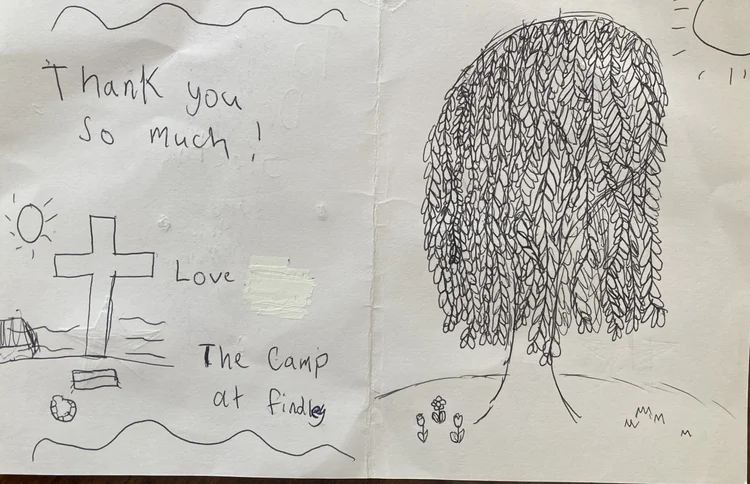 Thank you
so much!
Love
The Camp
at Findley